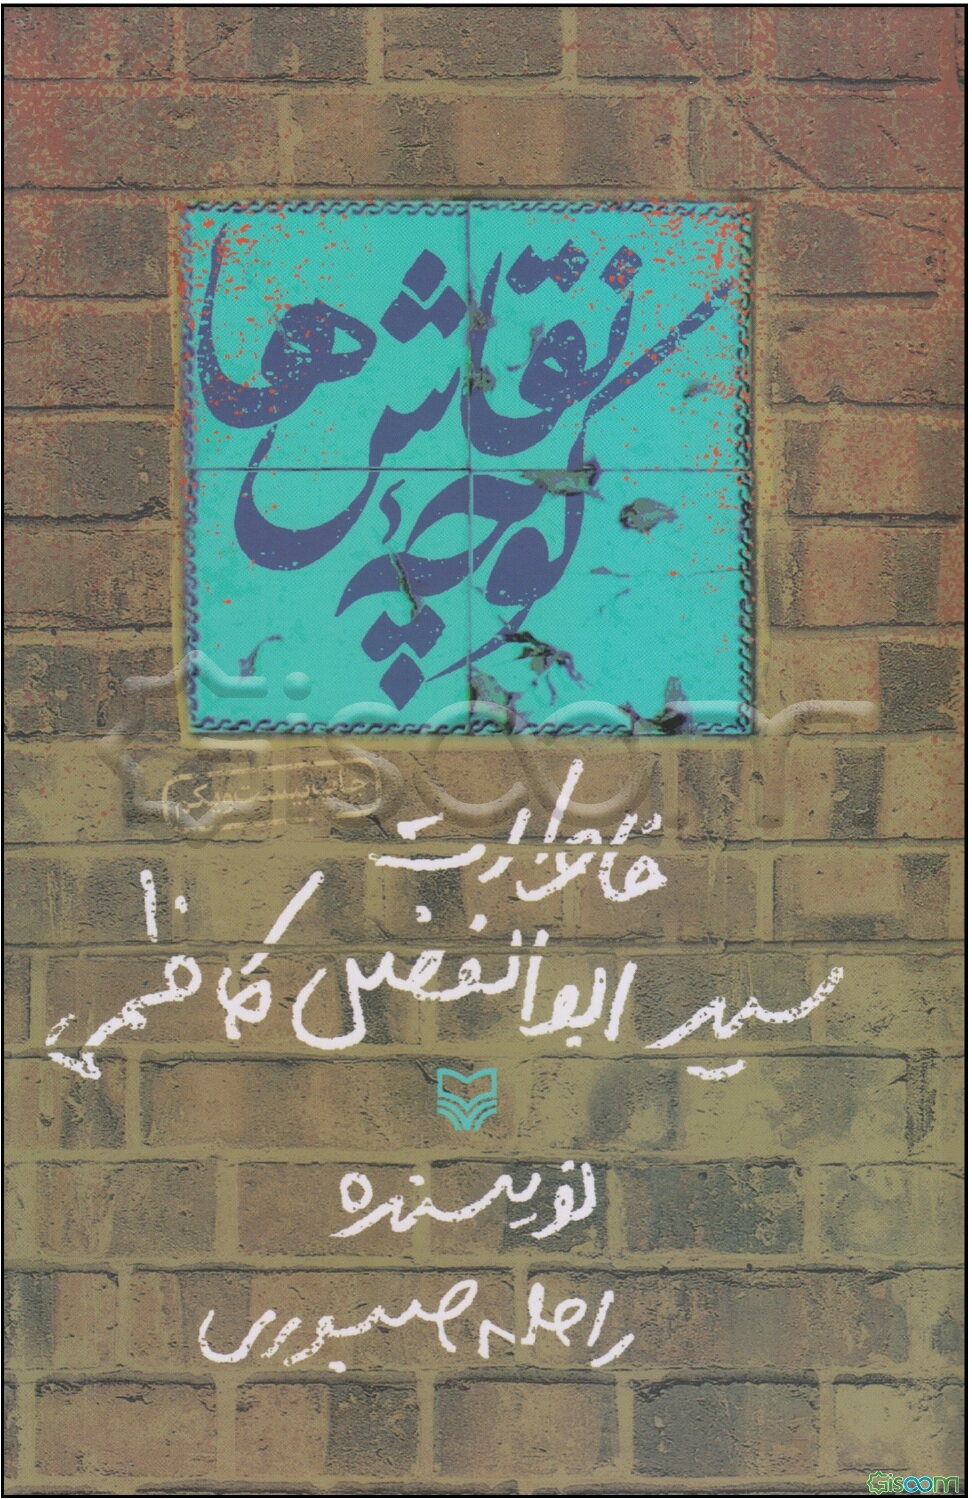 کوچه
نقاش‌ها
Gisoom
چاپ بیست‌و‌یکم
خاطرات
سید ابوالفضل کاظمی
نویسنده
راحله صبوری
Gisoom